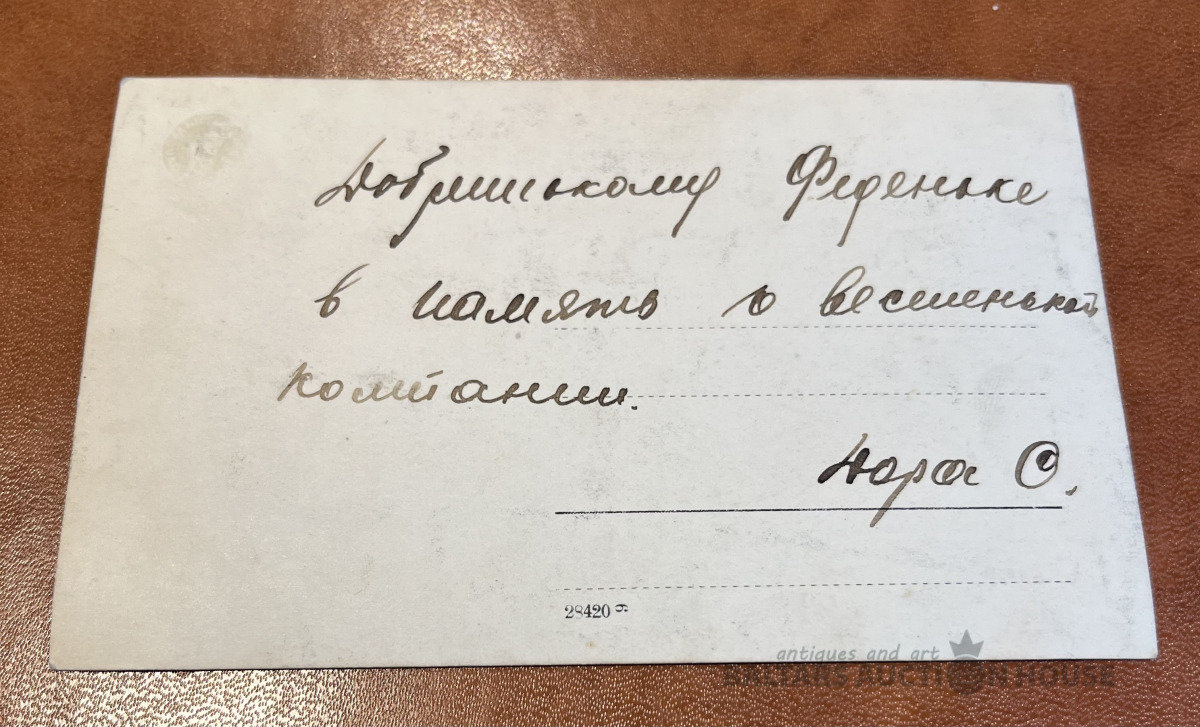 Добринькому Феденьке
в память о веселенькой
компании.
Дора О.
28420 9
antiques and art
BALTARS AUCTION HOUSE